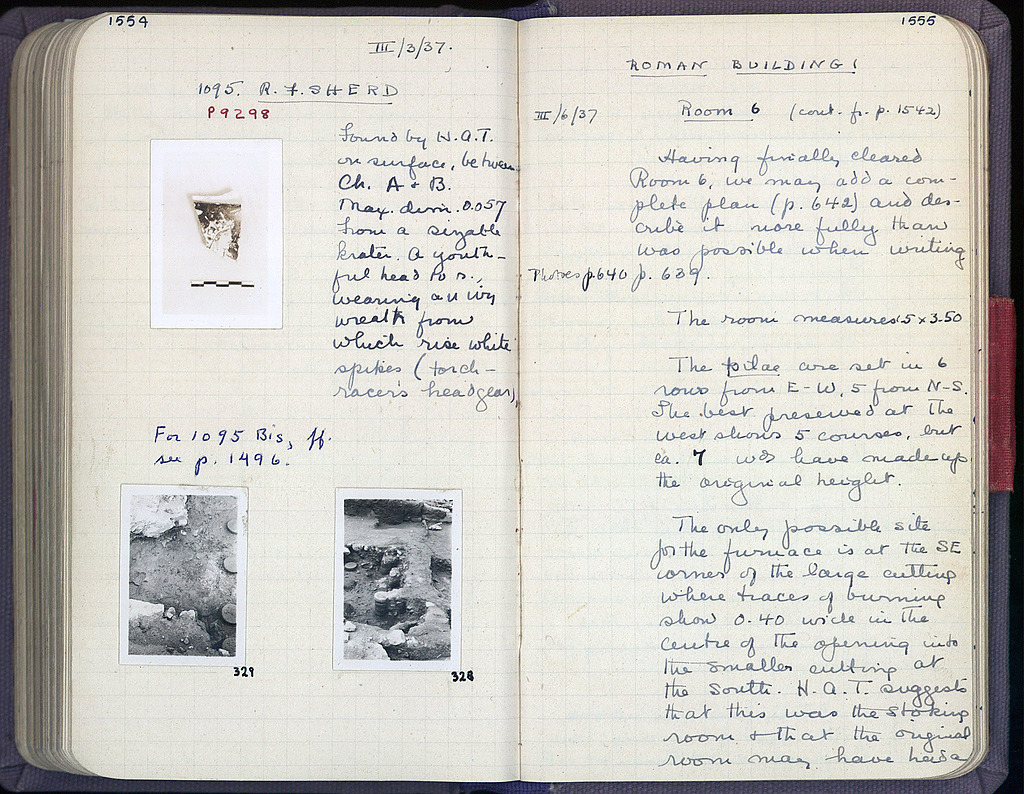 1554
III/3/37.
1095. R.F. SHERD
P9298
Found by H.A.T.
on surface, between
Ch. A + B.
Max. dim. 0.057
From a sizable
krater. A youth-
ful head to r.,
wearing an ivy
wreath from
which rise white
spikes (torch-
racer's headgear)
For 1095 Bis, ff.
see p. 1496.
329
328
1555
ROMAN BUILDING!
III/6/37 Room 6 (cont. fr. p. 1542)
Having finally cleared
Room 6, we may add a com-
plete plan (p. 642) and des-
cribe it more fully than
was possible when writing
Photos p. 640 p. 639.
The room measures 5 x 3.50
The pilae are set in 6
rows from E-W, 5 from N-S.
The best preserved at the
west shows 5 courses, but
ca. 7 wd have made up
the original height.
The only possible site
for the furnace is at the SE
corner of the large cutting
where traces of burning
show 0.40 wide in the
centre of the opening into
the smaller cutting at
the South. H.A.T. suggests
that this was the stoking
room + that the original
room may have had a